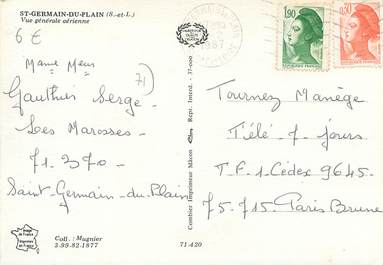 ST-GERMAIN-DU-PLAIN (S.-et-L.)
Vue générale aérienne
6 €
71
Mame Meur
Gauthier Serge
Les Marosses
71.370
Saint-Germain-du-Plain
Coll. : Mugnier
3-99-82-1877
71-420
Combier Imprimeur Mâcon
Repr. Interd. - 37-000
1987
1,90
0,30
Tournez Manège
Télé 7 Jours
T.F.1. Cédex 9645.
75-715. Paris Brune